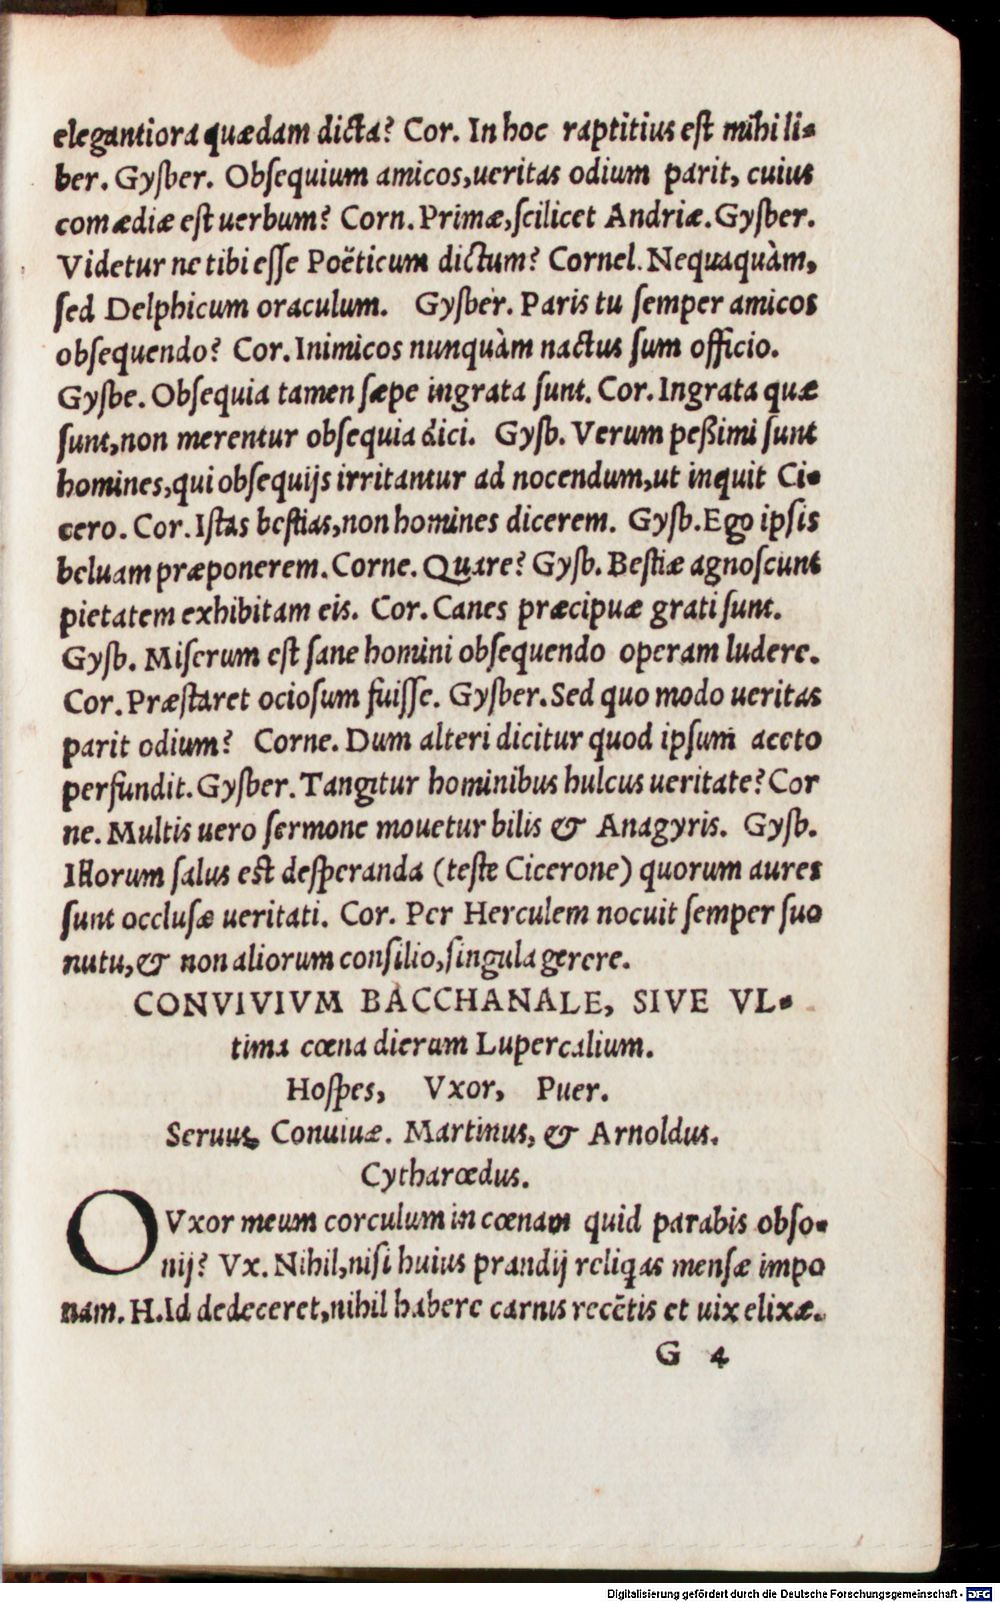 elegantiora quædam dicta? Cor. In hoc raptitius est mihi li-
ber. Gysber. Obsequium amicos, ueritas odium parit, cuius
comœdiæ est uerbum? Corn. Primæ, scilicet Andriæ. Gysber.
Videtur ne tibi esse Poëticum dictum? Cornel. Nequaquàm,
sed Delphicum oraculum. Gysber. Paris tu semper amicos
obsequendo? Cor. Inimicos nunquàm nactus sum officio.
Gysbe. Obsequia tamen sæpe ingrata sunt. Cor. Ingrata quæ
sunt, non merentur obsequia dici. Gysb. Verum peßimi sunt
homines, qui obsequijs irritantur ad nocendum, ut inquit Ci-
cero. Cor. Istas bestias, non homines dicerem. Gysb. Ego ipsis
beluam præponerem. Corne. Quare? Gysb. Bestiæ agnoscunt
pietatem exhibitam eis. Cor. Canes præcipuæ grati sunt.
Gysb. Miserum est sane homini obsequendo operam ludere.
Cor. Præstaret ociosum fuisse. Gysber. Sed quo modo ueritas
parit odium? Corne. Dum alteri dicitur quod ipsum aceto
perfundit. Gysber. Tangitur hominibus hulcus ueritate? Cor
ne. Multis uero sermone mouetur bilis & Anagyris. Gysb.
Illorum salus est desperanda (teste Cicerone) quorum aures
sunt occlusæ ueritati. Cor. Per Herculem nocuit semper suo
nutu, & non aliorum consilio, singula gerere.
CONVIVIVM BACCHANALE, SIVE VL-
tima cœna dierum Lupercalium.
Hospes, Vxor, Puer.
Seruus, Conuiuæ. Martinus, & Arnoldus.
Cytharœdus.
O Vxor meum corculum in cœnam quid parabis obso-
nij? Vx. Nihil, nisi huius prandij reliqas mensæ impo
nam. H. Id dedeceret, nihil habere carnis recẽtis et uix elixæ.
G 4
Digitalisierung gefördert durch die Deutsche Forschungsgemeinschaft - DFG